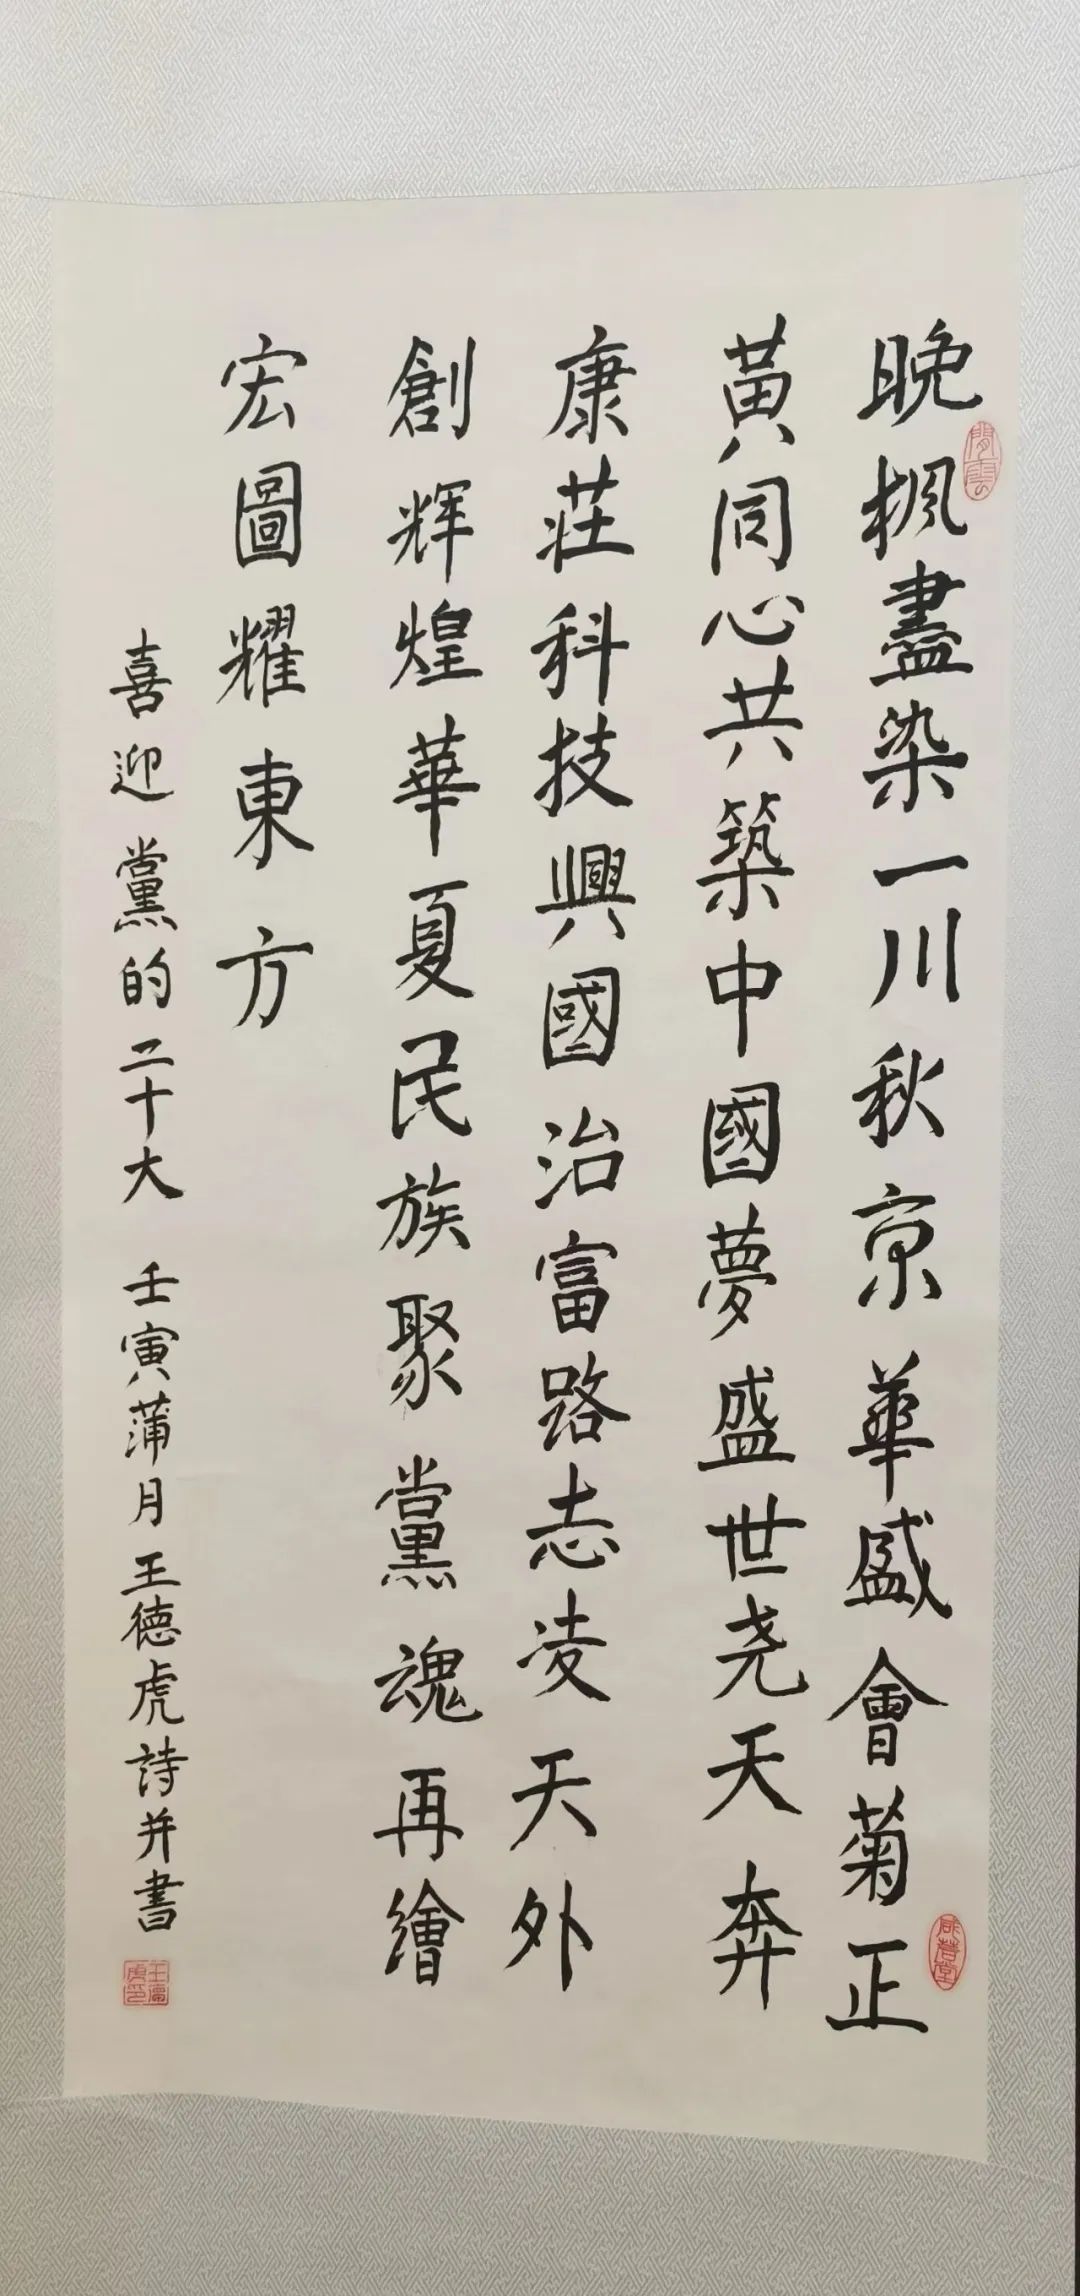 晚楓盡染一川秋京華盛會菊正
黃同心共築中國夢盛世尧天奔
康莊科技興國治富路志凌天外
創輝煌華夏民族聚黨魂再繪
宏圖耀東方
喜迎黨的二十大 壬寅蒲月王德虎詩并書